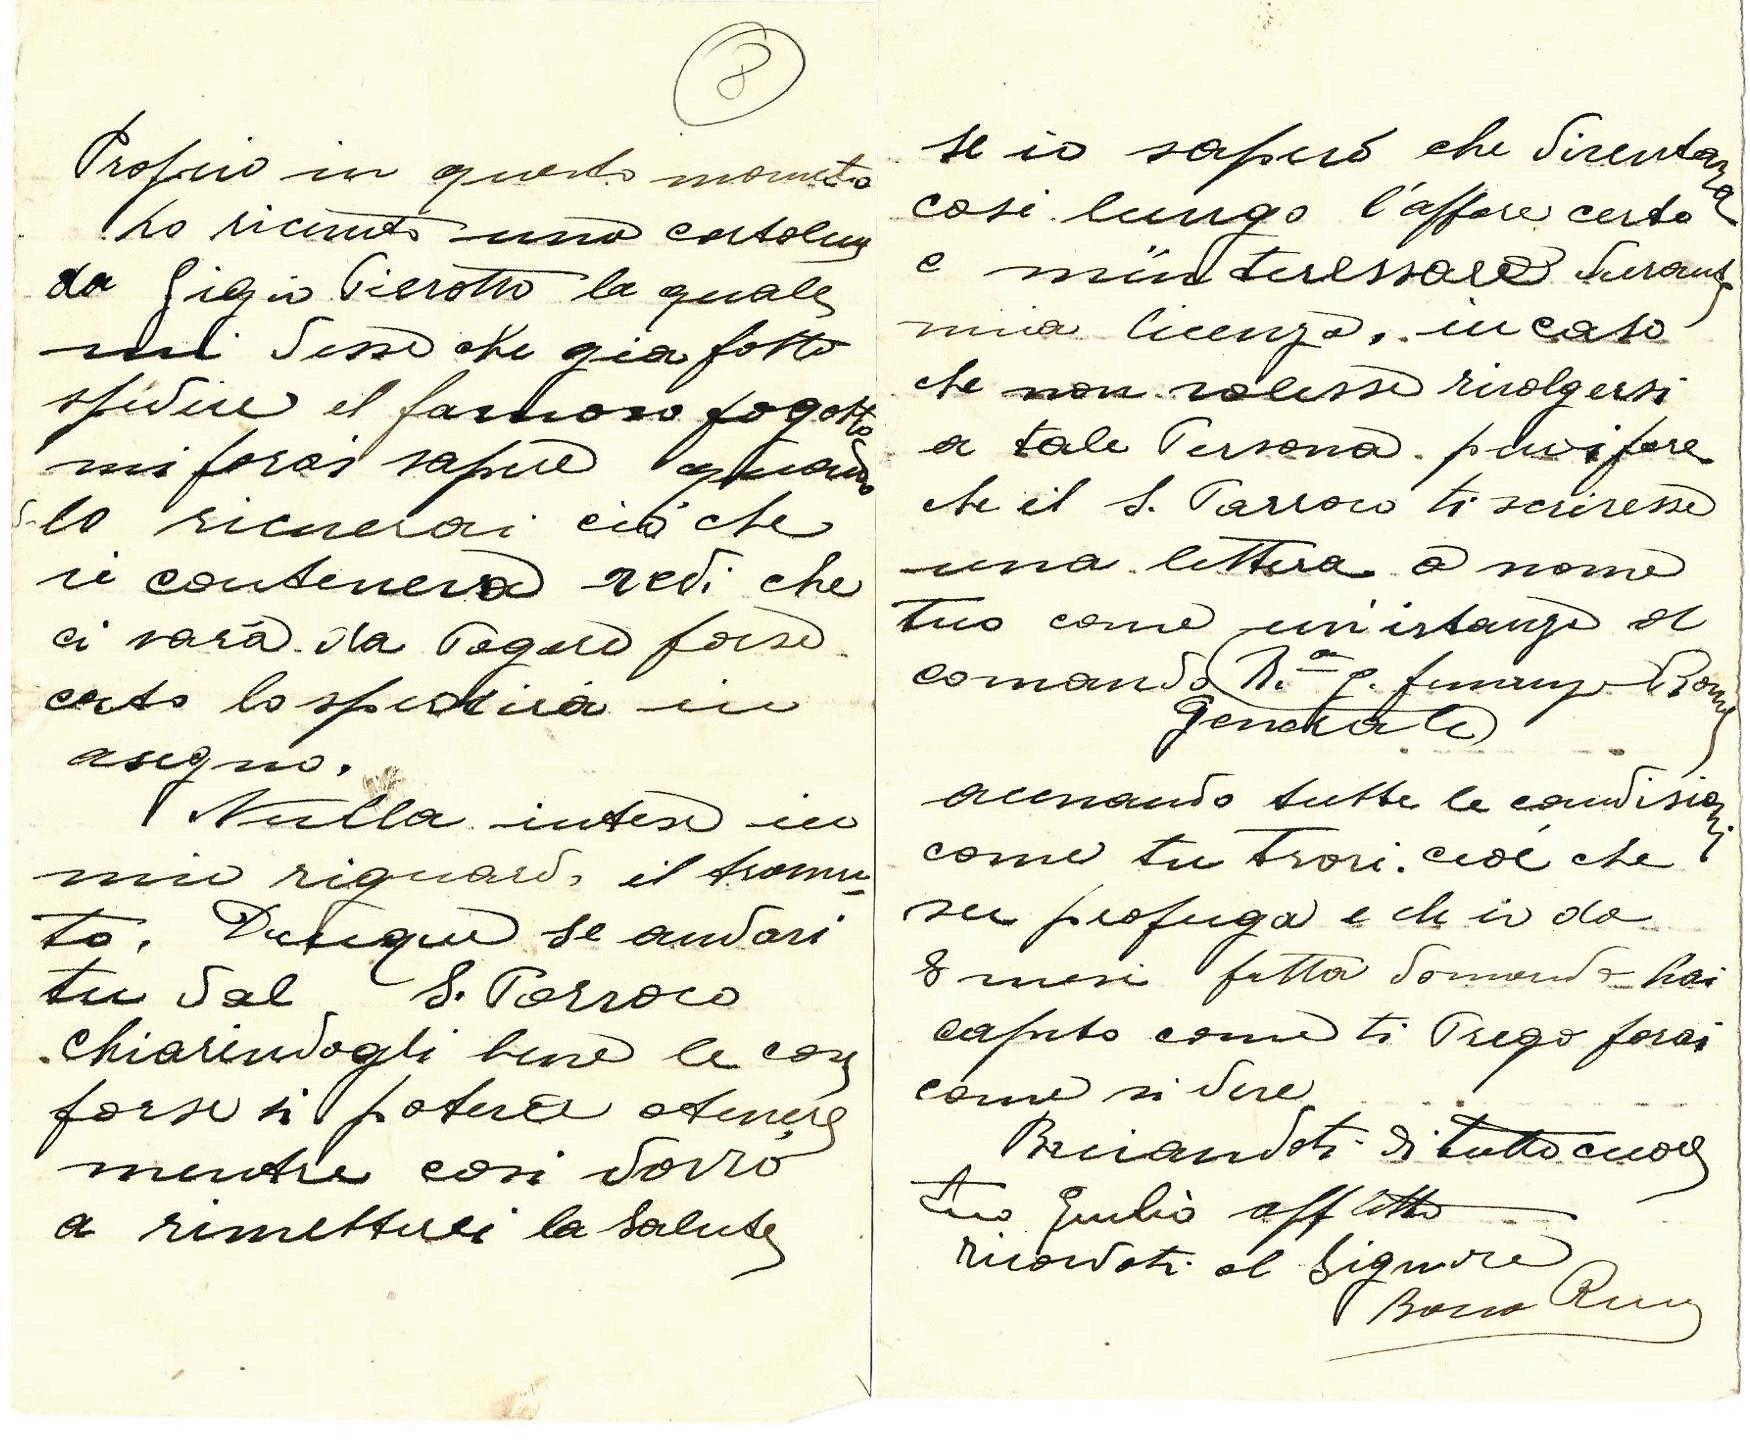 8
Proprio in questo momento
ho ricevuto una cartolina
da Gigio Pierotto la quale
mi disse che gia fatto
spedire el famoso fagotto
mi farai sapere quando
lo riceverai ciò che
vi contenerà vedi che
ci sarà da Pagare forse
certo lo spedirà in
asegno.
Nulla intesi in
mio riguardo il tramu-
to. Dunque se andasi
tu dal S. Parroco
chiarindogli bene le cose
forse si potera otenere
mentre cosi dovrò
a rimetterci la salute
se io sapevo che diventava
cosi lungo l'affare certo
e minteressave durante
mia licenza. in caso
che non volesse rivolgersi
a tale Persona. puoi fare
che il S. Parroco ti scrivesse
una lettera a nome
tuo come un'istanza al
comando R.a g. finanza Roma
Generale
acenando tutte le condisioni
come tu trovi. cioè che
sei profuga e che io da
8 mesi fatta domanda hai
capito come ti Prego farai
come si deve
Baciandoti di tutto cuore
tuo Giulio aff etto
ricordati al Signore